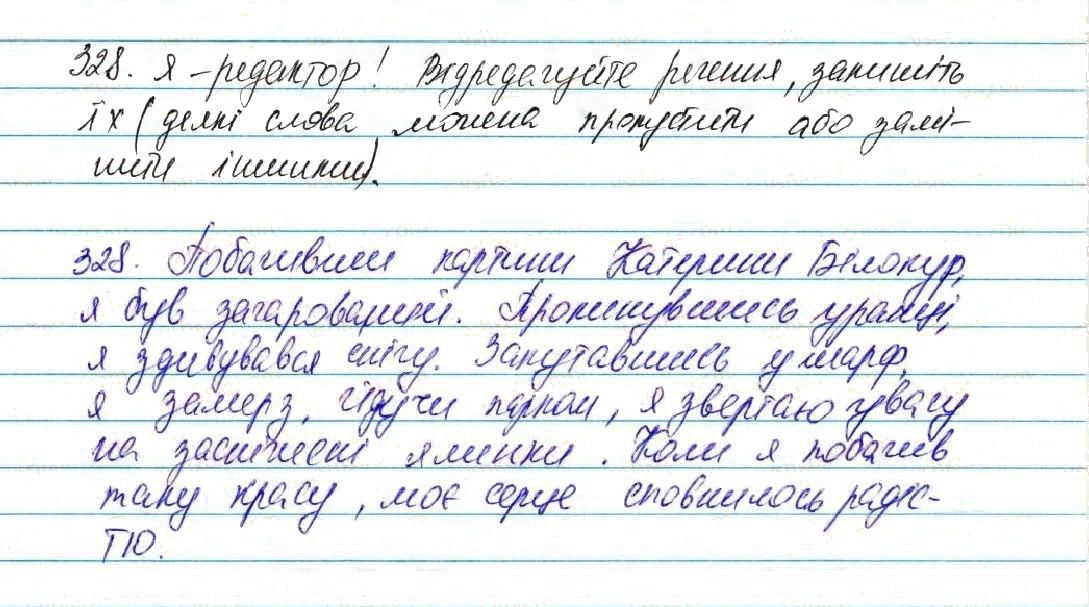 328. Я – редактор! Відредагуйте речення, запишіть
їх (деякі слова можна пропустити або замі-
нити іншими).
328. Побачивши картини Катерини Білокур,
я був зачарований. Прокинувшись уранці,
я здивувався снігу. Закутавшись у шарф,
я замерз. Ідучи парком, я звертаю увагу
на засніжені ялинки. Коли я побачив
таку красу, моє серце сповнилось радіс-
тю.